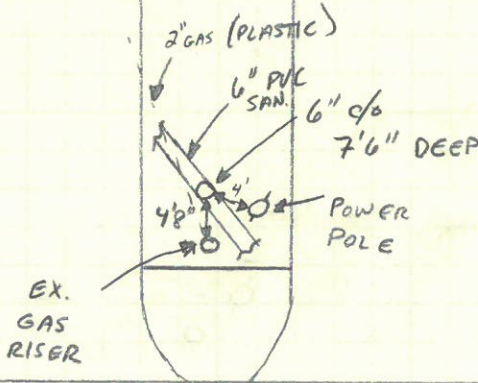 2" GAS (PLASTIC)
6" PVC
SAN.
6" c/o
7'6" DEEP
4'
4'8"
POWER
POLE
EX.
GAS
RISER